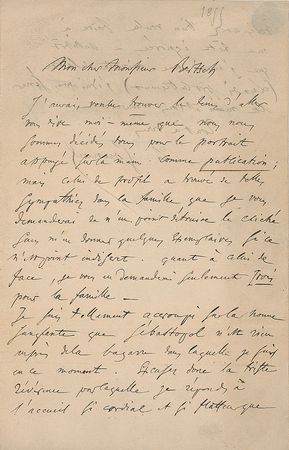 1855
Mon cher Monsieur Bertsch
J'aurais voulu trouver le tems d'aller
vous dire moi-même que nous nous
sommes décidés pour le portrait
appuyé sur la main. comme publication;
mais celui de profil a trouvé de telles
sympathies dans la famille que je vous
demanderai de n'en point détruire le cliché
sans m'en donner quelques exemplaires si ce
n'est point indiscret. quant à celui de
face, je vous en demanderai seulement trois
pour la famille —
Je suis tellement accroupi sur la nonne
sanglante que Sébastopol n'est rien
auprès de la bagarre dans laquelle je suis
en ce moment. Excusez donc la triste
révérence par laquelle je réponds à
l'accueil si cordial et si flatteur que